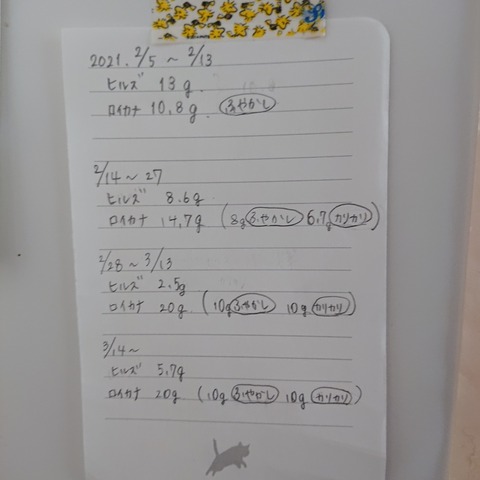 2021. 2/5 ~ 2/13
ヒルズ 13g.
ロイカナ 10.8g. ふやかし
2/14 ~ 27
ヒルズ 8.6g
ロイカナ 14.7g (8gふやかし 6.7gカリカリ)
2/28 ~ 3/13
ヒルズ 2.5g
ロイカナ 20g (10gふやかし 10gカリカリ)
3/14~
ヒルズ 5.7g
ロイカナ 20g (10gふやかし 10gカリカリ)